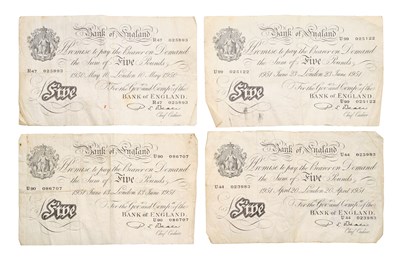 Bank of England
R47 025993
I Promise to pay the Bearer on Demand
the Sum of Five Pounds
1950 May 16 London 16 May 1950
For the Gov.r and Comp.a of the
BANK of ENGLAND.
R47 025993
Five
Chief Cashier
Bank of England
025122
I Promise to pay the Bearer on Demand
the Sum of Five Pounds
1951 June London June 1951
For the Gov.r and Comp.a of the
BANK of ENGLAND.
025122
Five
Chief Cashier
Bank of England
066707
I Promise to pay the Bearer on Demand
the Sum of Five Pounds
1951 June London June 1951
For the Gov.r and Comp.a of the
BANK of ENGLAND.
066707
Five
Chief Cashier
Bank of England
U44
I Promise to pay the Bearer on Demand
the Sum of Five Pounds
1951 April 20 London 20 April 1951
For the Gov.r and Comp.a of the
BANK of ENGLAND.
U44
Five
Chief Cashier